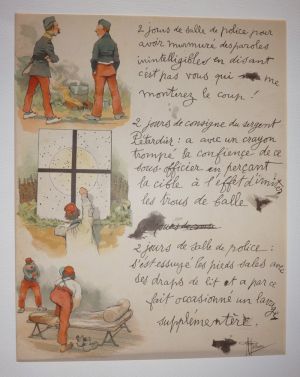 2 jours de salle de police pour
avoir murmuré des paroles
inintelligibles en disant
c'est pas vous qui me
monterez le coup !
2 jours de consigne du sergent
Pétardier : a avec un crayon
trompé la confience de ce
sous officier en perçant
la cible à l'effet d'imiter
les trous de balle
2 jours de salle de police :
s'est essuyé les pieds sales avec
ses draps de lit et a par ce
fait occasionné un lavage
supplémentère.